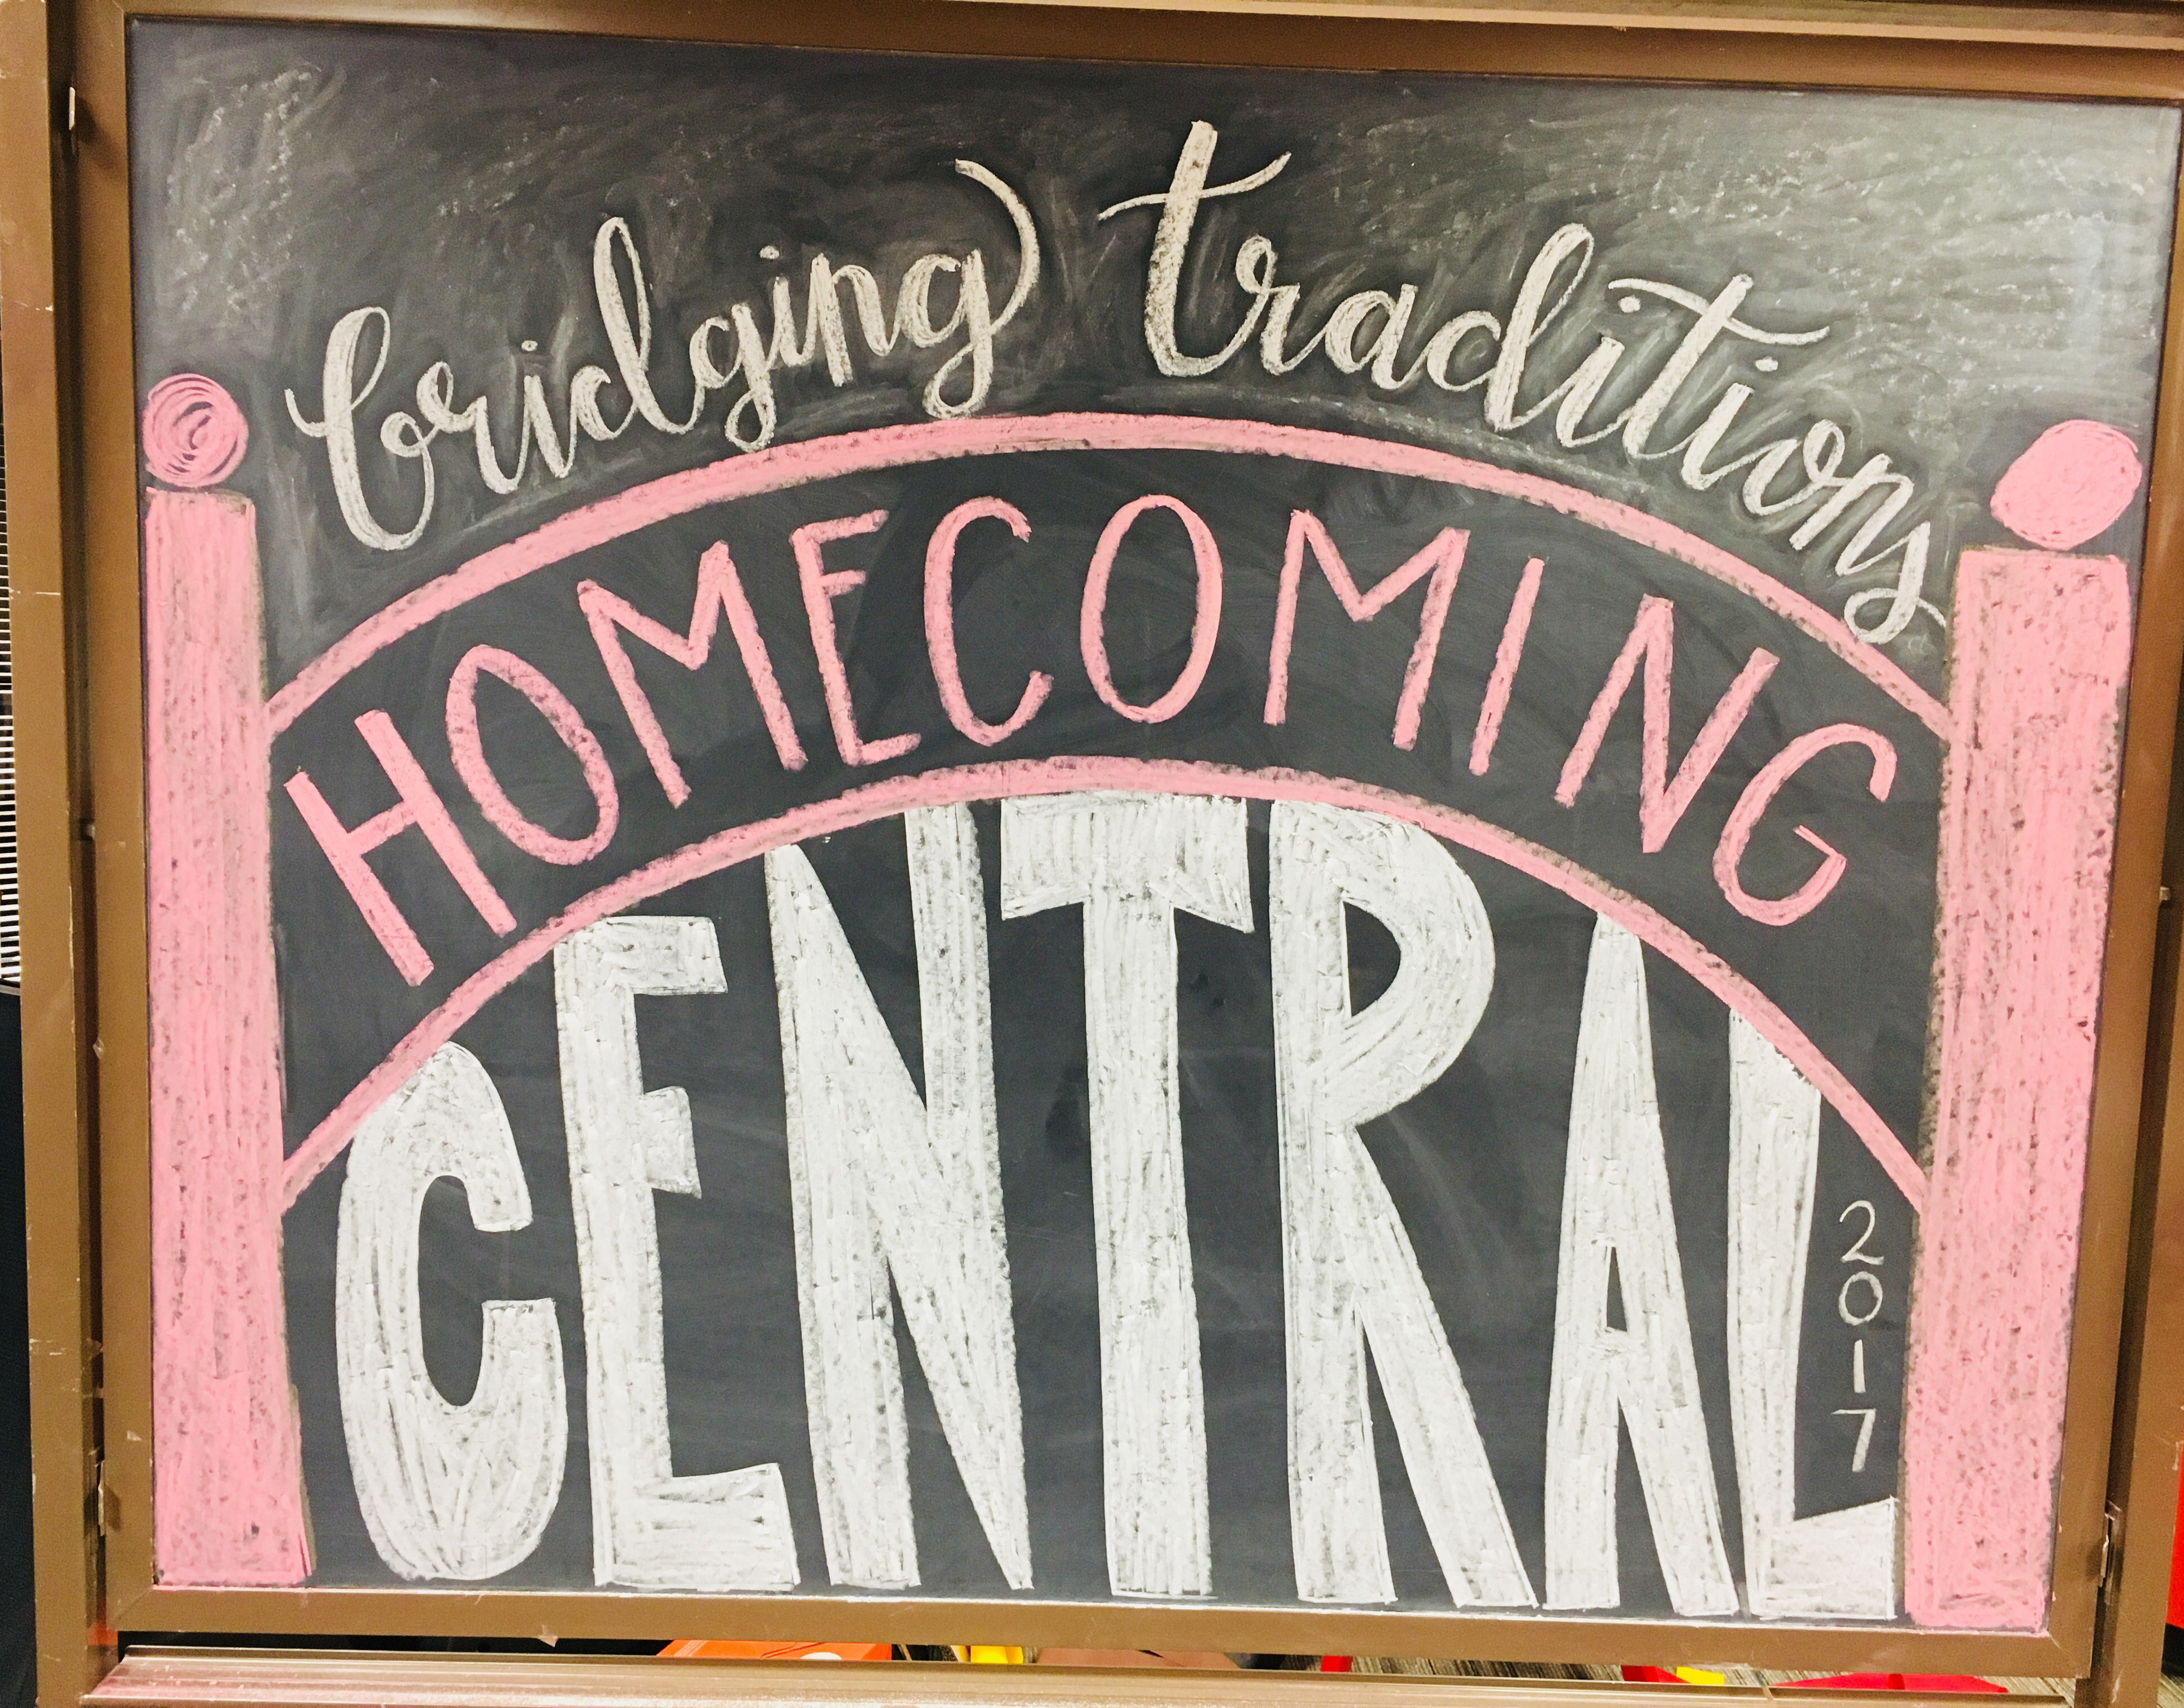 bridging traditions
HOMECOMING
CENTRAL
2017